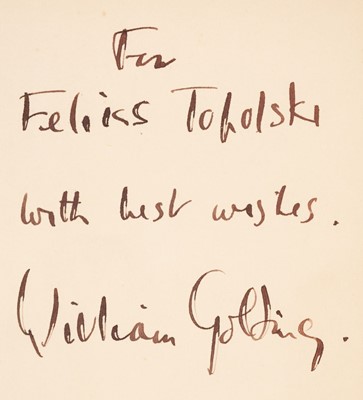 For
Feliks Topolski
with best wishes.
William Golding.